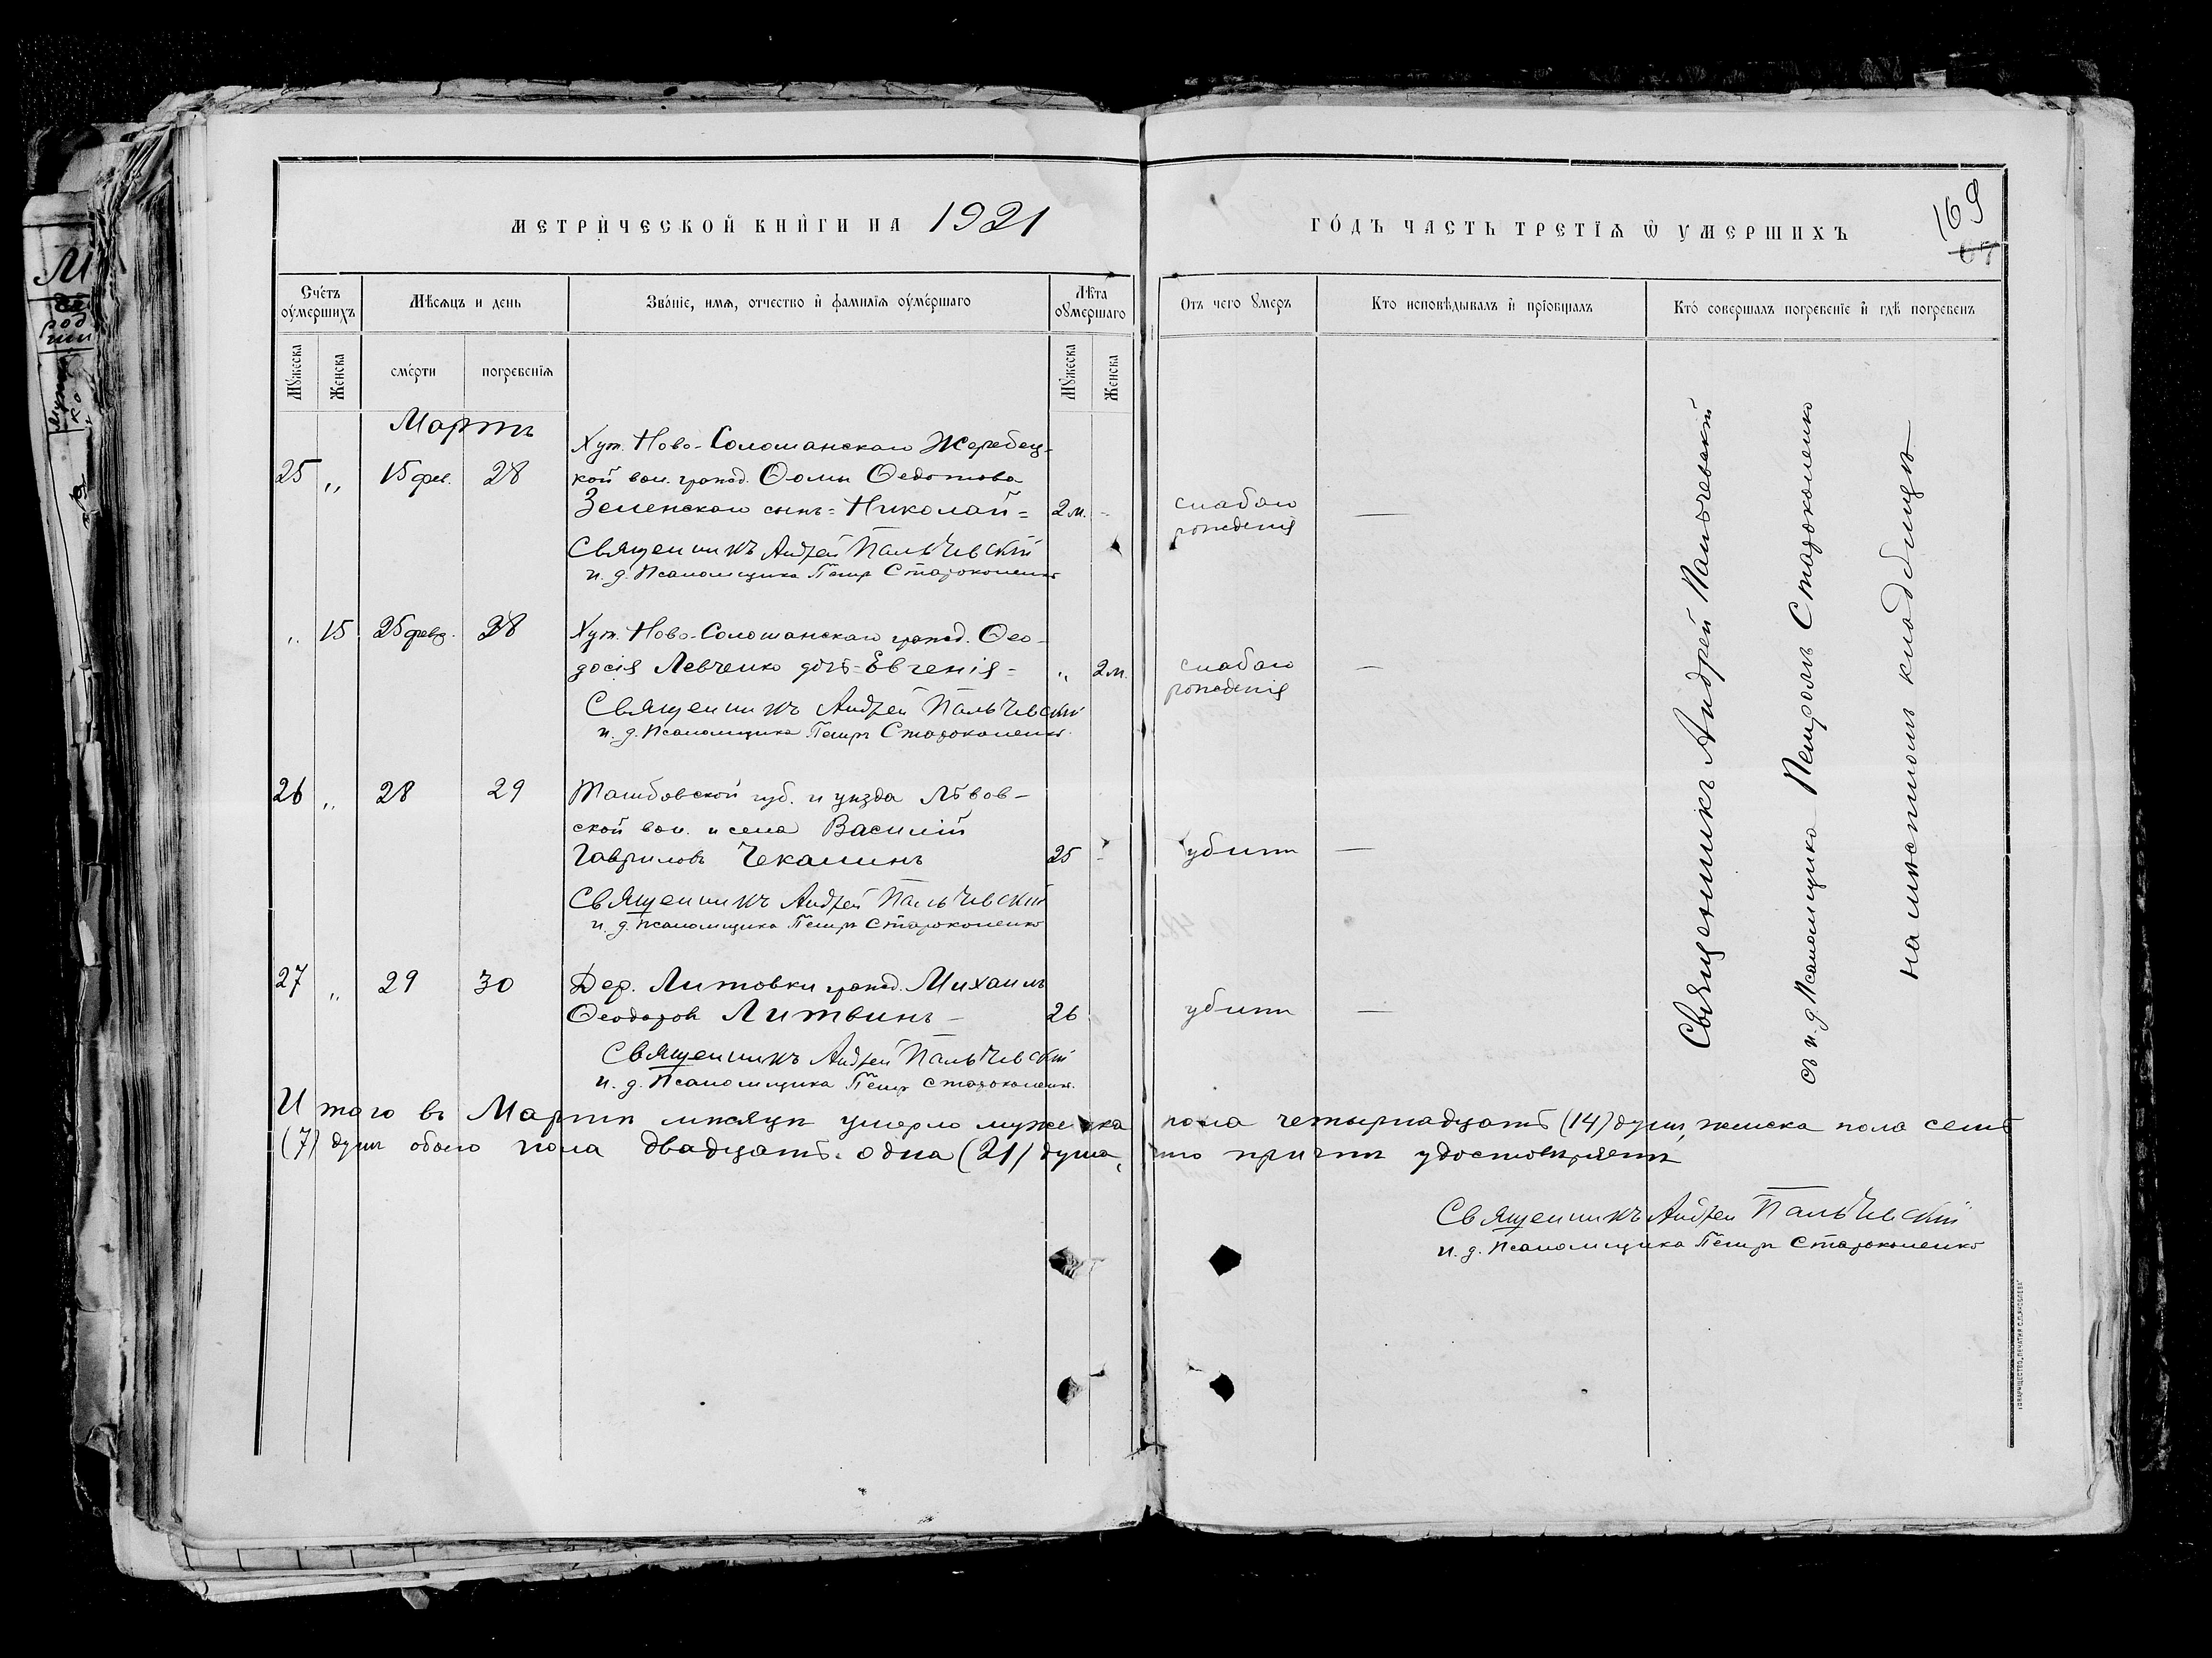 МЕТРИЧЕСКОЙ КНИГИ НА 1921
ГОДЪ ЧАСТЬ ТРЕТІЯ Ѡ УМЕРШИХЪ
169
67
Счетъ оумершихъ
Мѣсяцъ и день
Званіе, имя, отчество и фамилія оумершаго
Лѣта оумершаго
Отъ чего умеръ
Кто исповѣдывалъ и пріобщалъ
Кто совершалъ погребеніе и гдѣ погребенъ
Мужеска
Женска
смерти
погребенія
Мужеска
Женска
Мартъ
Хут. Ново-Солошанскаго Жеребец-
25 „ 15 фев. 28 кой вол. гражд. Ѳомы Ѳедотова
Зеленскаго сынъ = Николай = 2 м. - слабаго рожденія —
Священникъ Андрей Пальчевскій
и. д. Псаломщика Петръ Староколенко
„ 15 25 февр. 28 Хут. Ново-Солошанскаго гражд. Ѳео-
досія Левченко дочь = Евгенія = „ 2 м. слабаго рожденія —
Священникъ Андрей Пальчевскій
и. д. Псаломщика Петръ Староколенко
26 „ 28 29 Тамбовской губ. и уѣзда Львов-
ской вол. и села Василій
Гавриловъ Чекалинъ 25 - убитъ —
Священникъ Андрей Пальчевскій
и. д. Псаломщика Петръ Староколенко
27 „ 29 30 Дер. Литовки гражд. Михаилъ
Ѳеодоровъ Литвинъ — 26 убитъ —
Священникъ Андрей Пальчевскій
и. д. Псаломщика Петръ Староколенко
Священникъ Андрей Пальчевскій
съ и. д. Псаломщика Петромъ Староколенко
на мѣстномъ кладбищѣ
Итого въ Мартѣ мѣсяцѣ умерло мужеска пола четырнадцать (14) душъ, женска пола семь
(7) душъ обоего пола двадцать одна (21) душа, что причтъ удостовѣряетъ
Священникъ Андрей Пальчевскій
и. д. Псаломщика Петръ Староколенко